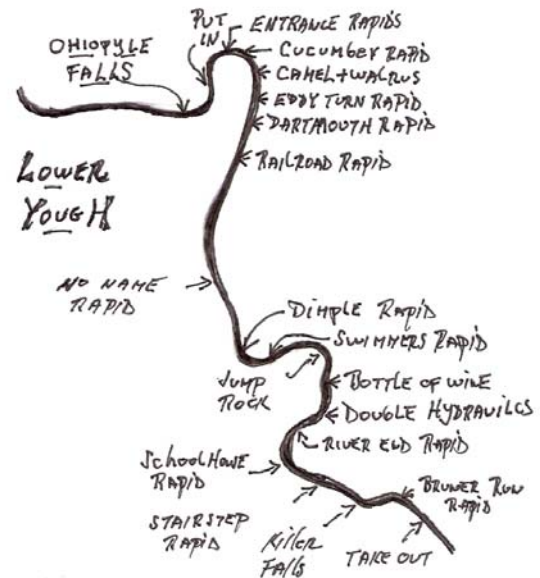 PUT
IN
ENTRANCE RAPIDS
OHIOPYLE
FALLS
CUCUMBER RAPID
CAMEL + WALRUS
EDDY TURN RAPID
DARTMOUTH RAPID
RAILROAD RAPID
LOWER
YOUGH
NO NAME
RAPID
DIMPLE RAPID
SWIMMERS RAPID
JUMP
ROCK
BOTTLE OF WINE
DOUBLE HYDRAULICS
RIVER END RAPID
SCHOOL HOUSE
RAPID
BRUNER RUN
RAPID
STAIRSTEP
RAPID
KILLER
FALLS
TAKE OUT